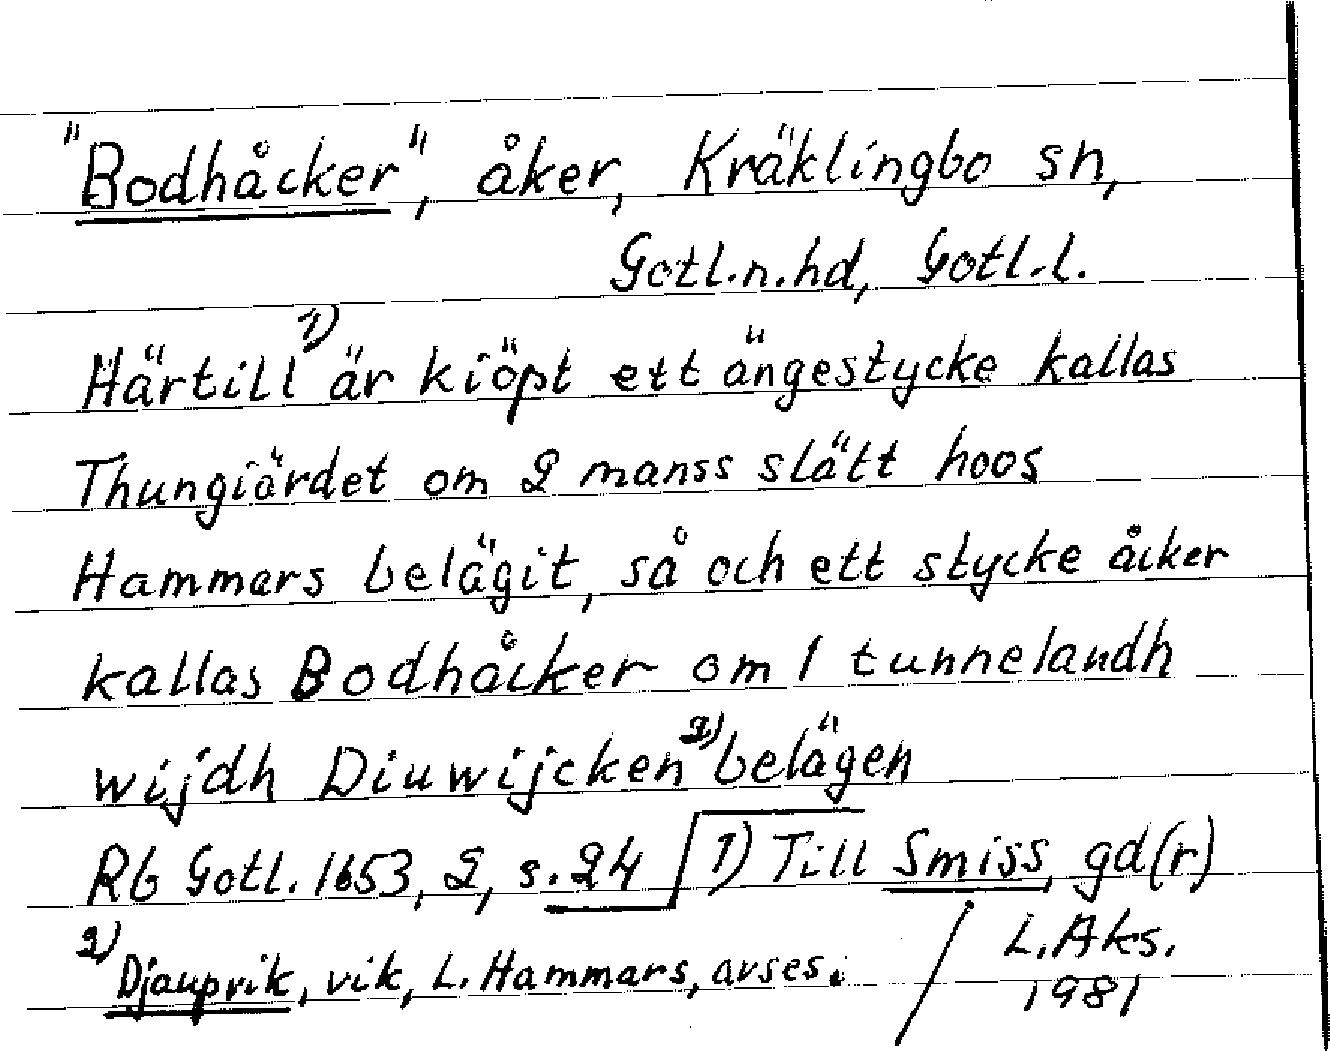 "Bodhåcker", åker, Kräklingbo sn,
Gotl.n.hd, Gotl.l.
Härtill 1) är kiöpt ett ängestycke kallas
Thungiärdet om 2 manss slätt hoos
Hammars belägit, så och ett stycke åcker
kallas Bodhåcker om 1 tunnelandh
wijdh Diuwijcken 2) belägen
Rb Gotl. 1653, 2, s. 24 1) Till Smiss, gd(r)
2) Djaupvik, vik, L. Hammars, avses.
L. Aks.
1981